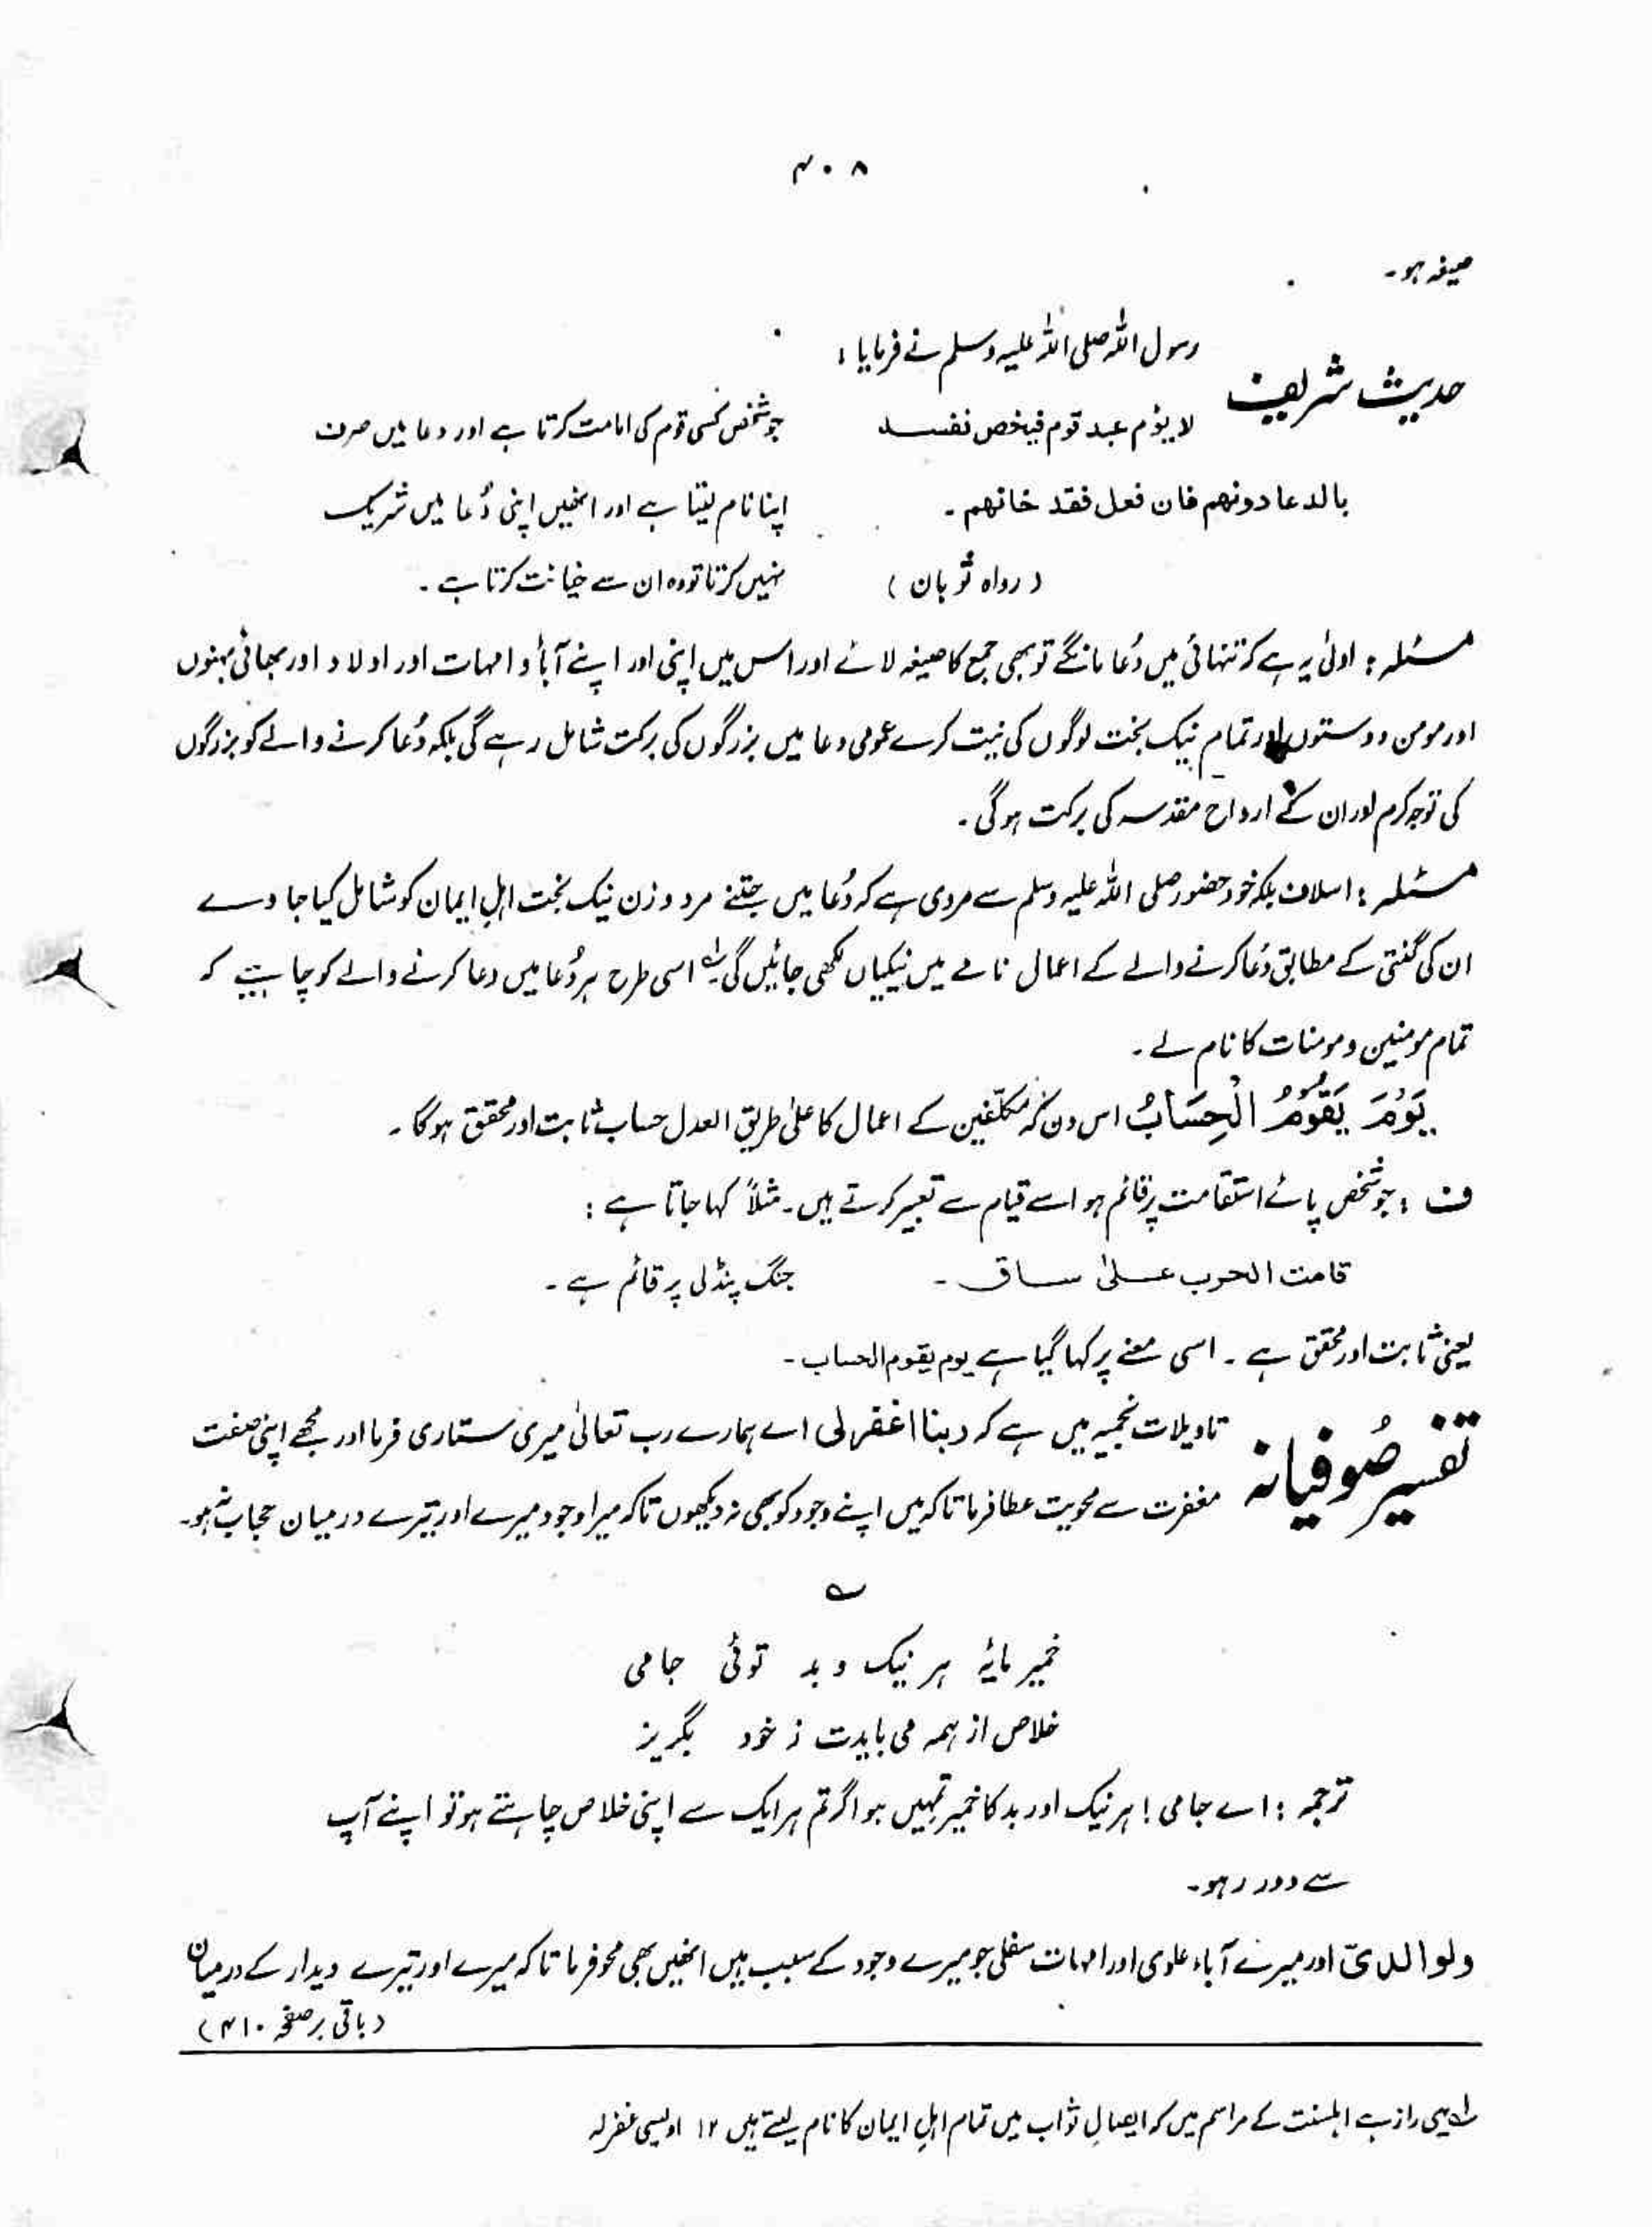 ۴۰۸
صیغہ ہو۔
حدیث شریف
رسول اللہ صلی اللہ علیہ وسلم نے فرمایا:
لا یؤم عبد قوم فیخص نفسہ
جو شخص کسی قوم کی امامت کرتا ہے اور دعا میں صرف
بالدعا دونھم فان فعل فقد خانھم۔
اپنا نام لیتا ہے اور انھیں اپنی دُعا میں شریک
(رواہ ثوبان)
نہیں کرتا تو وہ ان سے خیانت کرتا ہے۔
مسئلہ: اولیٰ یہ ہے کہ تنہائی میں دُعا مانگے تو بھی جمع کا صیغہ لائے اور اس میں اپنی اور اپنے آبأ و امہات اور اولاد اور بھائی بہنوں
اور مومن دوستوں اور تمام نیک بخت لوگوں کی نیت کرے عمومی دعا میں بزرگوں کی برکت شامل رہے گی بلکہ دُعا کرنے والے کو بزرگوں
کی توجہ کرم اور ان کے ارواح مقدسہ کی برکت ہو گی۔
مسئلہ: اسلاف بلکہ خود حضور صلی اللہ علیہ وسلم سے مروی ہے کہ دُعا میں جتنے مرد و زن نیک بخت اہلِ ایمان کو شامل کیا جاوے
ان کی گنتی کے مطابق دُعا کرنے والے کے اعمال نامے میں نیکیاں لکھی جائیں گی۔ٰ۱ اسی طرح ہر دُعا میں دعا کرنے والے کو چاہیے کہ
تمام مومنین و مومنات کا نام لے۔
یَوْمَ یَقُوْمُ الْحِسَابُ اس دن کہ مکلّفین کے اعمال کا علیٰ طریق العدل حساب ثابت اور محقق ہوگا۔
ف: جو شخص پائے استقامت پر قائم ہو اسے قیام سے تعبیر کرتے ہیں۔ مثلاً کہا جاتا ہے:
قامت الحرب علیٰ ساق۔
جنگ پنڈلی پر قائم ہے۔
یعنی ثابت اور محقق ہے۔ اسی معنے پر کہا گیا ہے یوم یقوم الحساب۔
تفسیر صُوفیانہ
تاویلات نجمیہ میں ہے کہ ربنا اغفرلی اے ہمارے رب تعالیٰ میری ستاری فرما اور مجھے اپنی صفت
مغفرت سے محویت عطا فرما تاکہ میں اپنے وجود کو بھی نہ دیکھوں تاکہ میرا وجود میرے اور تیرے درمیان حجاب نہ ہو۔
؎
خمیر مایۂ ہر نیک و بد توئی جامی
خلاص از ہمہ می بایدت ز خود بگریز
ترجمہ: اے جامی! ہر نیک اور بد کا خمیر تمہیں ہو اگر تم ہر ایک سے اپنی خلاص چاہتے ہو تو اپنے آپ
سے دور رہو۔
ولوالدیّ اور میرے آباء علوی اور امہات سفلی جو میرے وجود کے سبب ہیں انھیں بھی محو فرما تاکہ میرے اور تیرے دیدار کے درمیان
(باقی بر صفحہ ۴۱۰)
۱ یہی راز ہے اہلسنت کے مراسم میں کہ ایصالِ ثواب میں تمام اہلِ ایمان کا نام لیتے ہیں ۱۲ اویسی غفرلہ